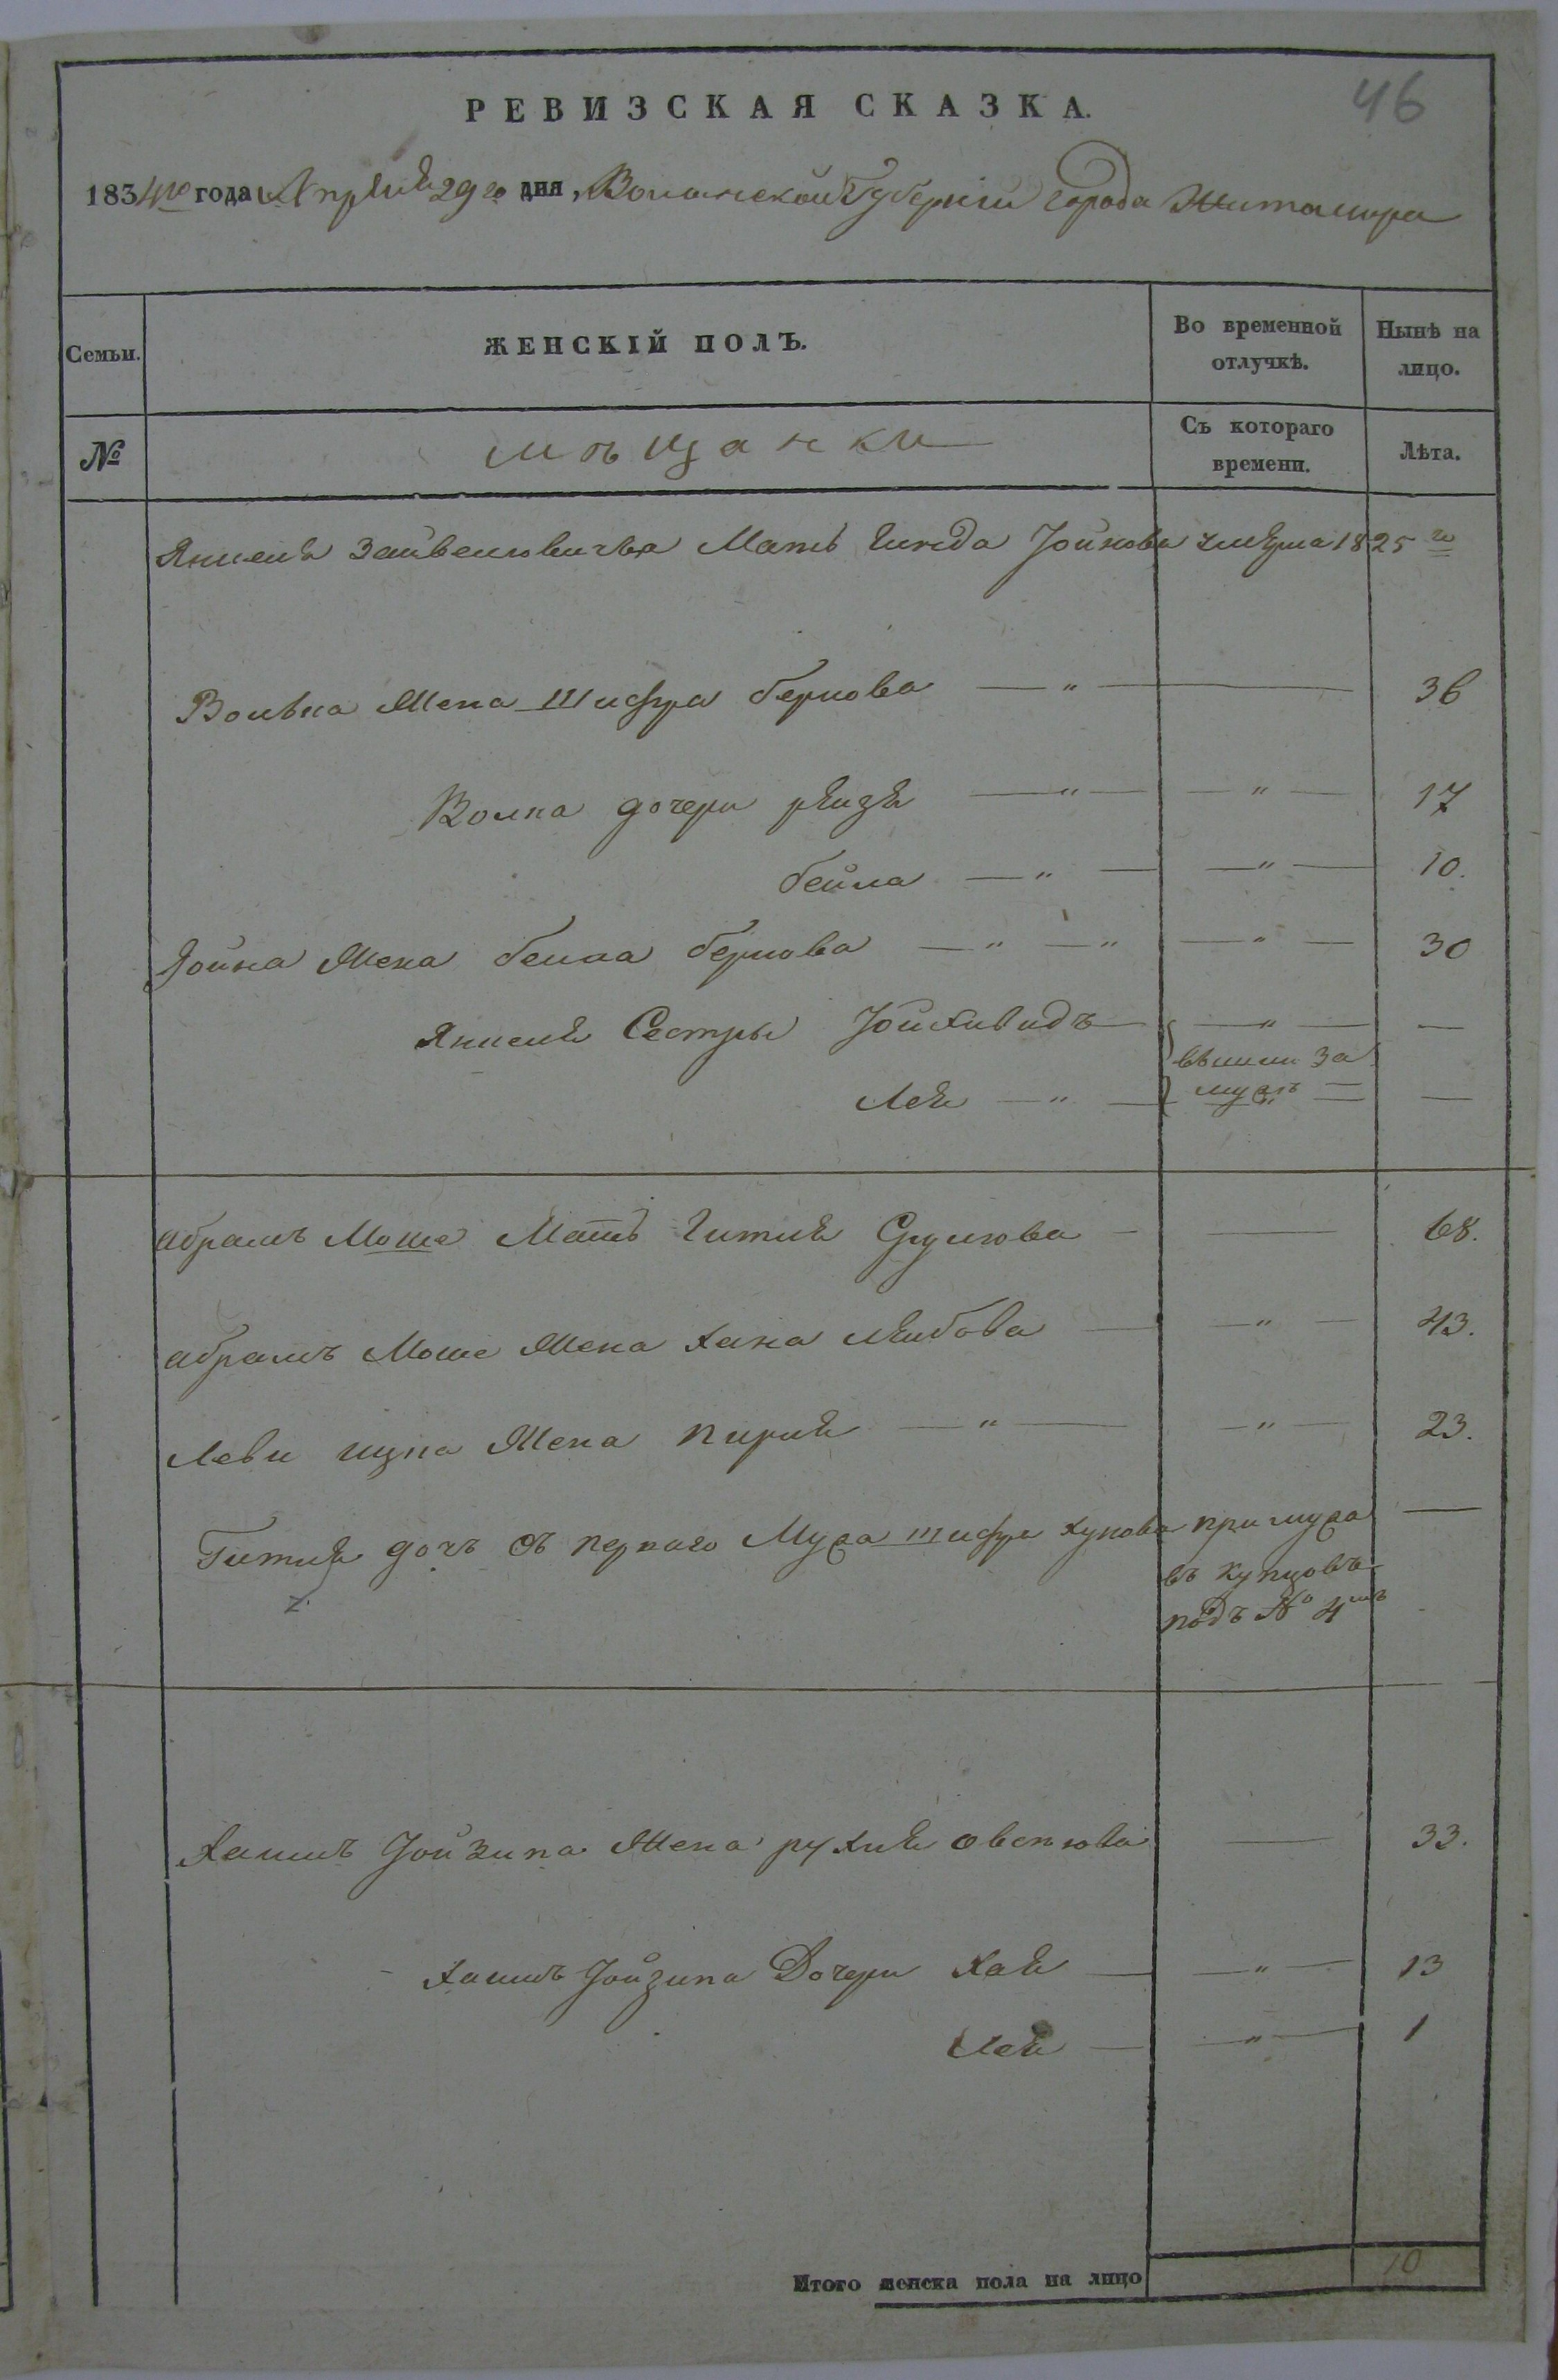 46
РЕВИЗСКАЯ СКАЗКА.
1834го года Апреля 29го дня, Волынской Губернии города Житомира
Семьи. ЖЕНСКІЙ ПОЛЪ. Во временной отлучкѣ. Нынѣ на лицо.
№ мѣщанки Съ котораго времени. Лѣта.
Янкеля Мать Гинда Іойнова умерла 1825го
Волька Жена Шифра беркова — " — 36
Волка дочери рейзя — " — — " — 17
бейла — " — — " — 10.
Іойна Жена бейла беркова — " — " — " — 30
Янкеля Сестры Іойхивидъ — — " — —
вышли за
Лея — " — мужъ — —
абрамъ Моше Мать Гитля Срулова — — 68.
абрамъ Моше Жена хана лейбова — — " — 43.
Леви ицка Жена пирля — " — — " — 23.
Гитля дочъ отъ перваго Мужа шифра при мужа —
въ купцовъ
подъ № 4мъ
хаимъ Іойзипа Жена рухля — 33.
хаимъ Іойзипа Дочери хая — — " — 13
Лея — — " — 1
Итого женска пола на лицо 10